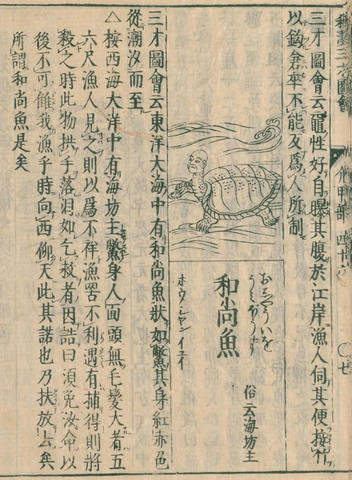 三才圖會云黿性好自曝其腹於江岸漁人伺其便接竹
以鈎倉卒不能反爲人所制
おしやういを
うみぼうず
和尚魚
ホウシヤンイユイ
俗云海坊主
三才圖會云東洋大海中有和尚魚狀如鱉其身紅赤色
從潮汐而至
△按西海大洋中有海坊主鱉身人面頭無毛髮大者五
六尺漁人見之則以爲不祥漁罟不利遇有捕得則將
殺之時此物拱手落泪如乞救者因誥曰須免汝命以
後不可讎我漁乎時向西仰天此其諾也乃扶放去矣
所謂和尚魚是矣